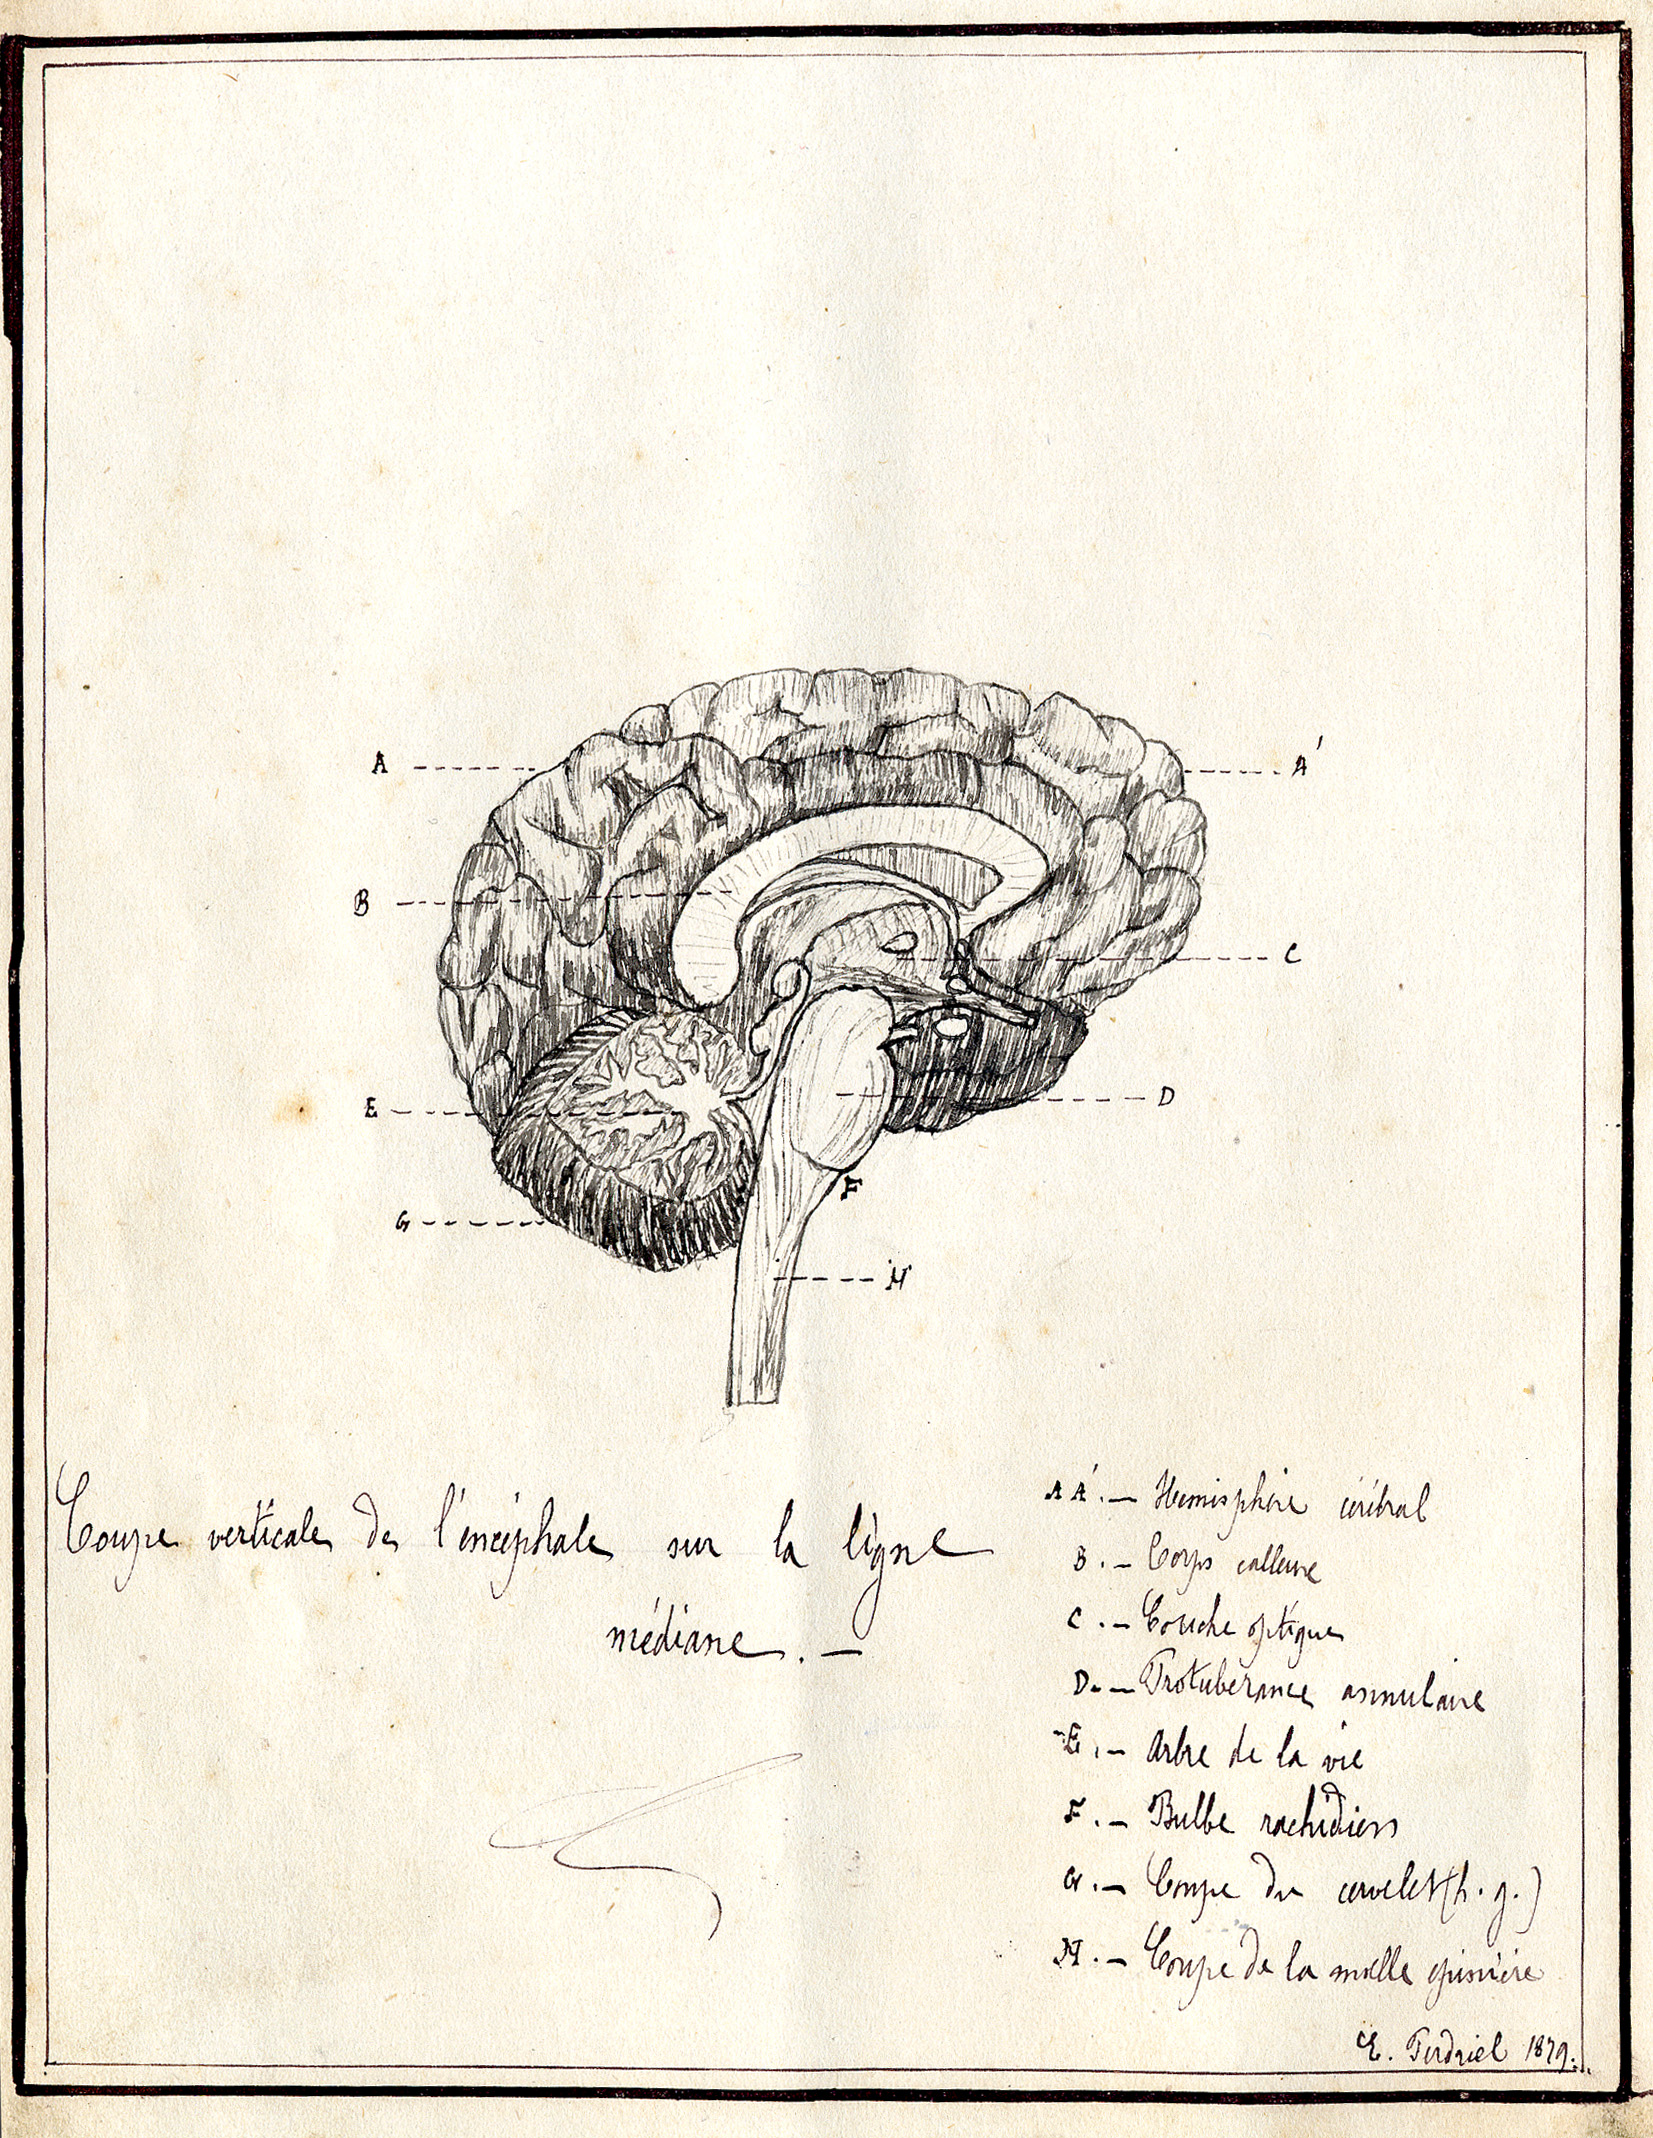 A
A'
B
C
E
D
F
G
H
Coupe verticale de l'encéphale sur la ligne
médiane. —
A A'. — Hémisphère cérébral
B. — Corps calleux
C. — Couche optique
D. — Protubérance annulaire
E. — Arbre de la vie
F. — Bulbe rachidien
G. — Coupe du cervelet (h. g.)
H. — Coupe de la moelle épinière
E. 1879.